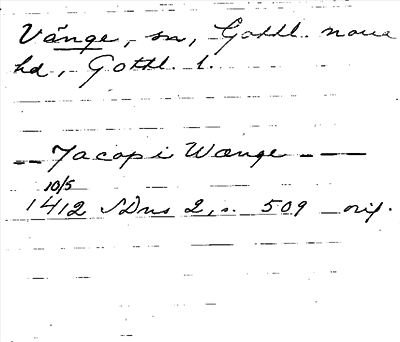 Vänge, sn, Gotl. norra
hd, Gotl. l.
-- Jacopi Wænge -- --
10/5
1412 SDns 2, s. 509 orig.